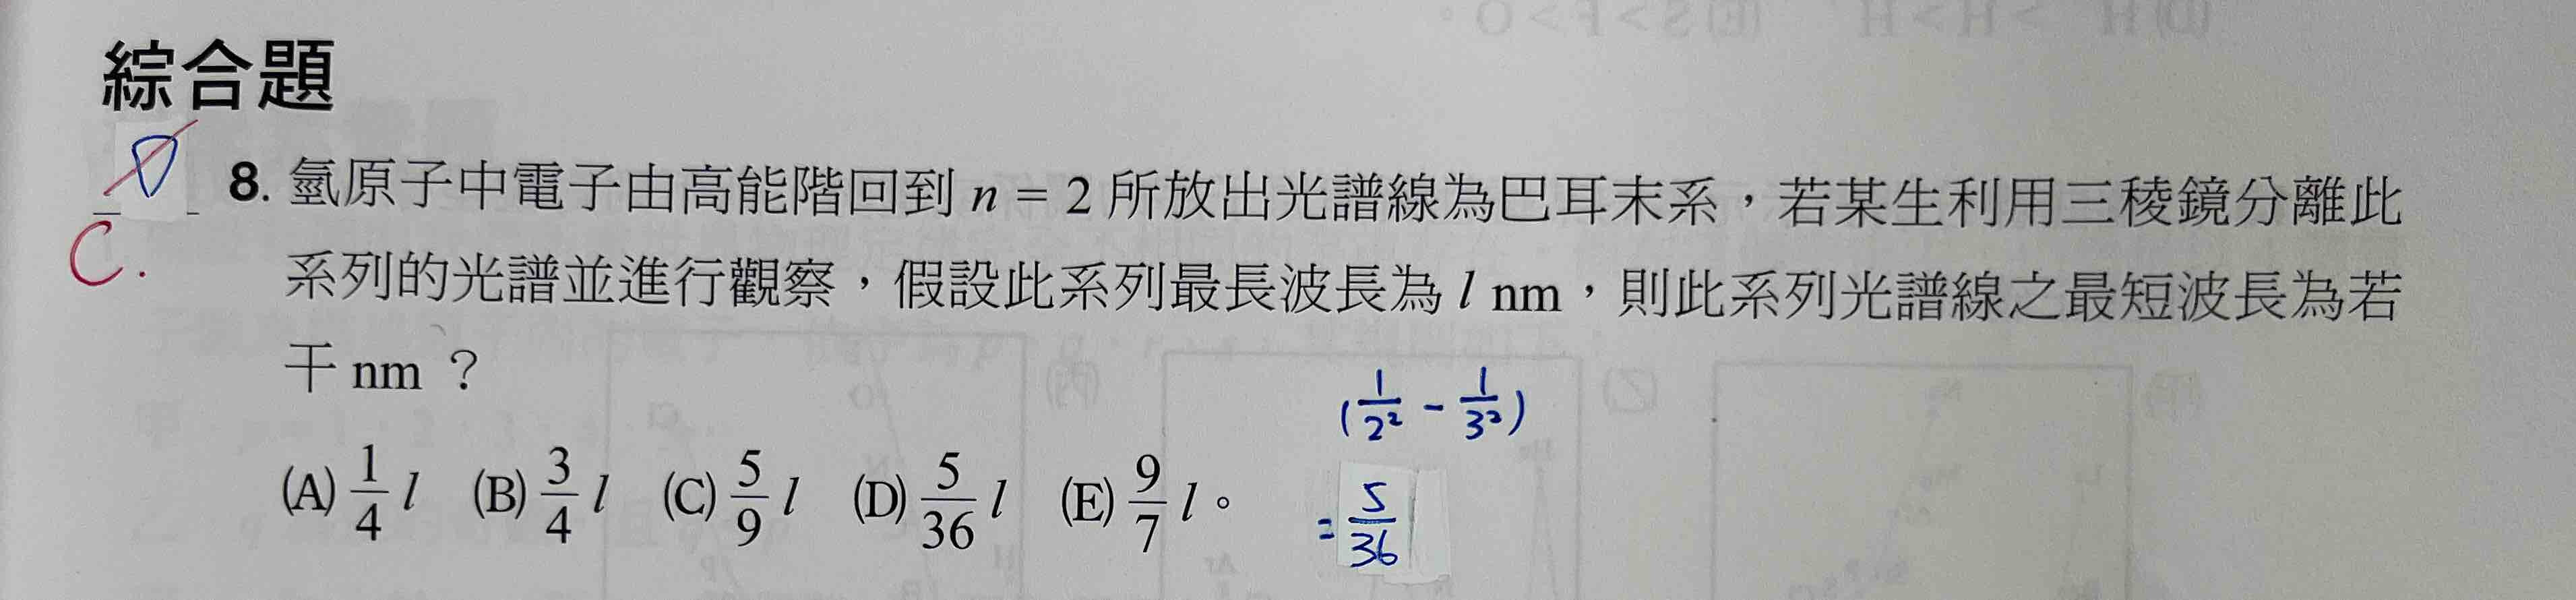 綜合題
D
8. 氫原子中電子由高能階回到 n = 2 所放出光譜線為巴耳末系，若某生利用三稜鏡分離此
C.
系列的光譜並進行觀察，假設此系列最長波長為 l nm，則此系列光譜線之最短波長為若
干 nm ？
(A) 1/4 l (B) 3/4 l (C) 5/9 l (D) 5/36 l (E) 9/7 l。
(1/2² - 1/3²)
= 5/36